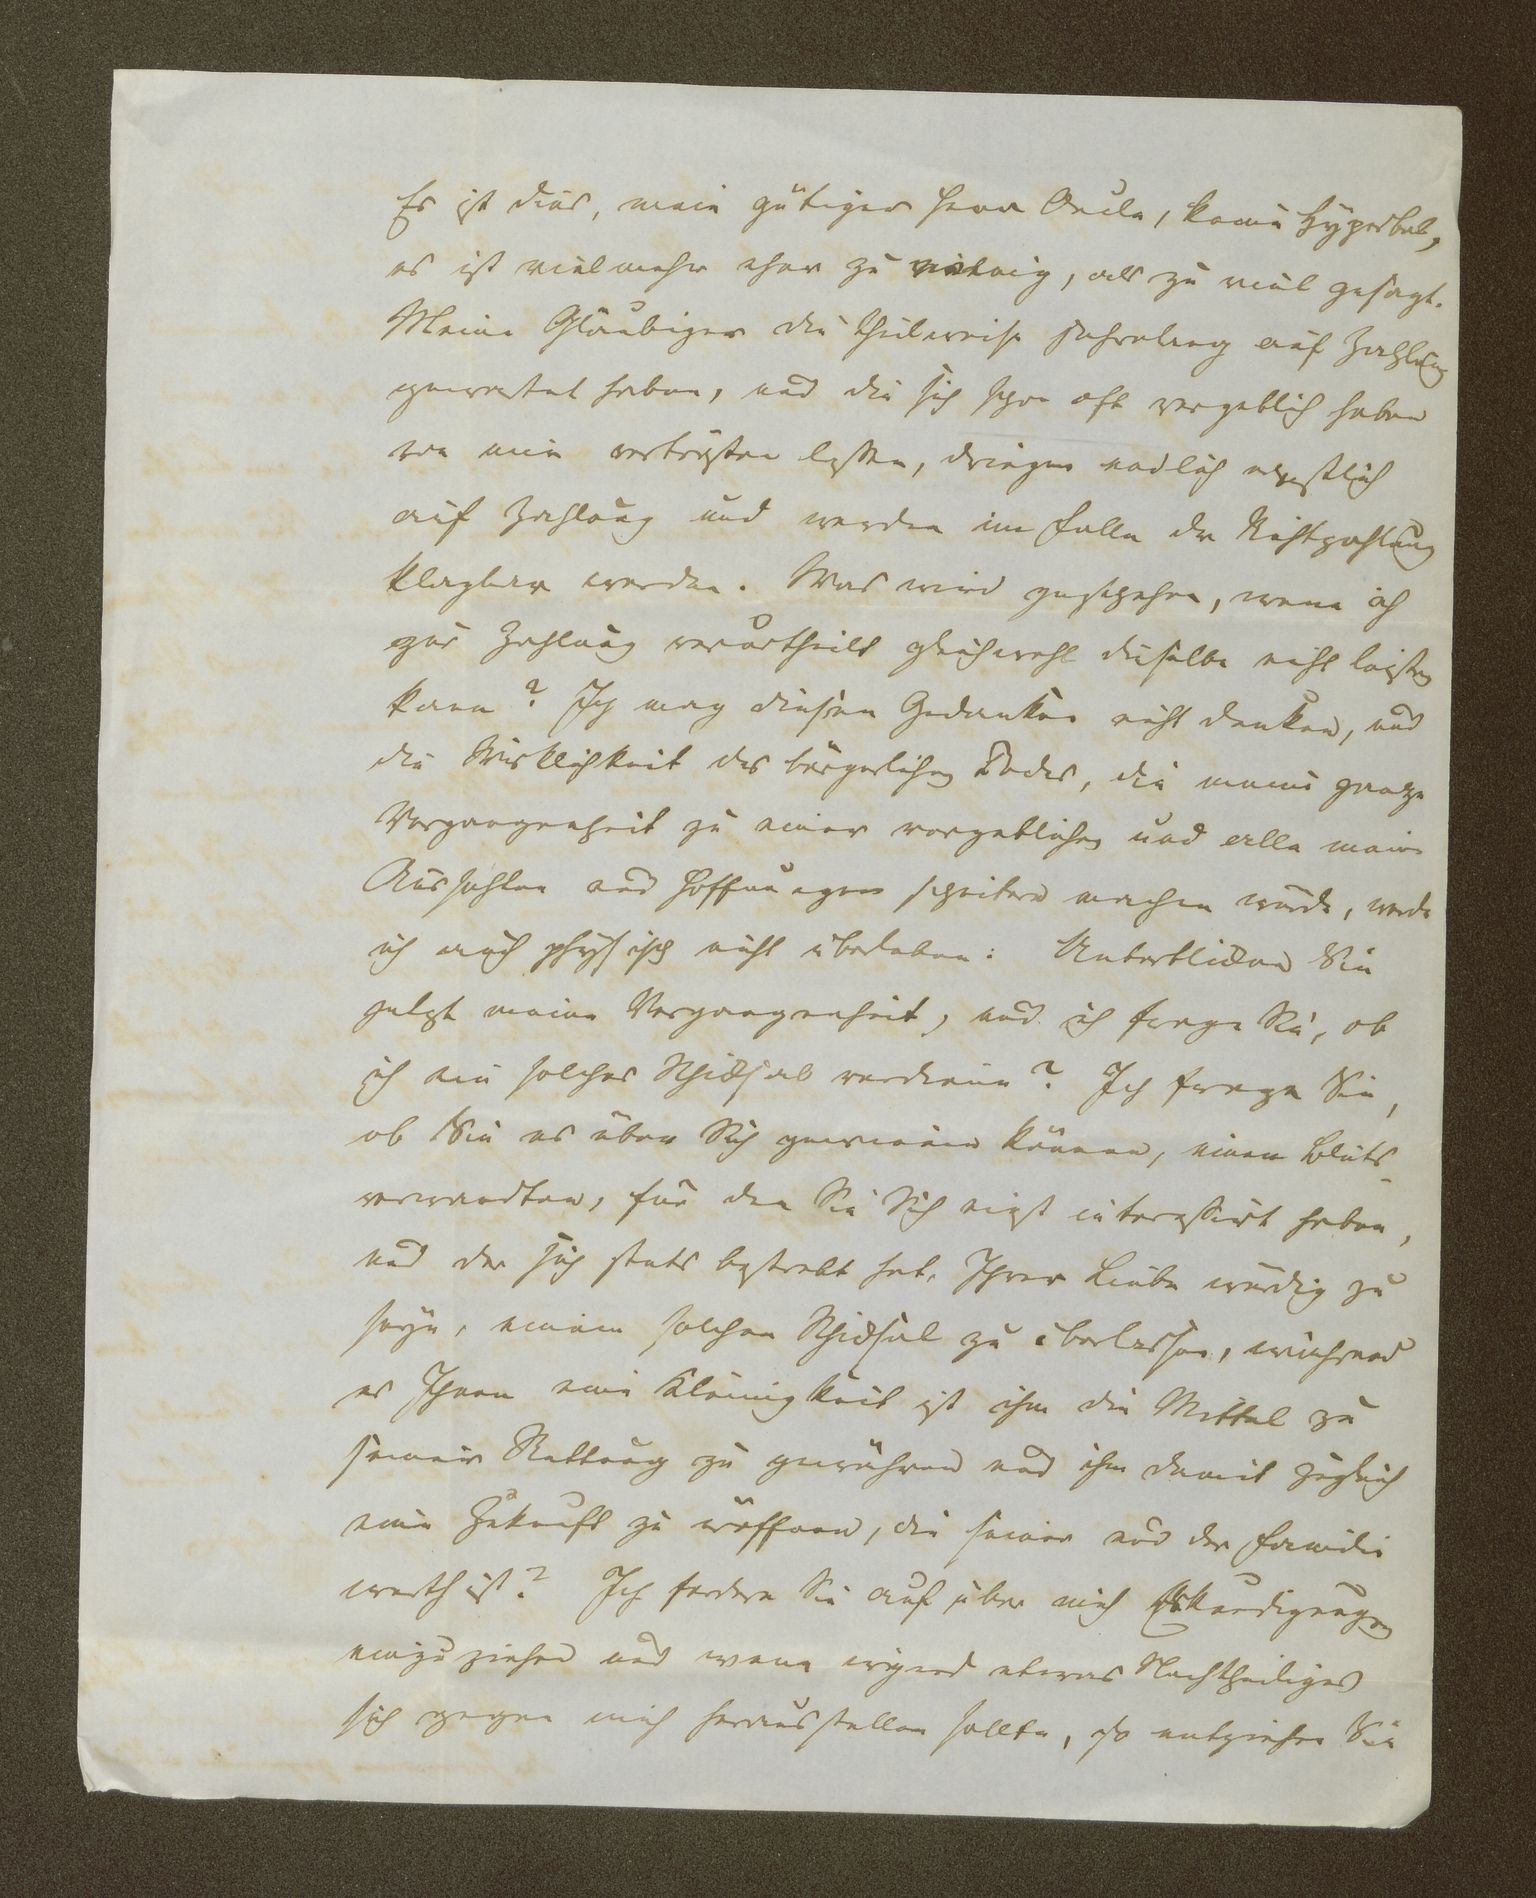 Es ist dies, mein gütiger Herr Onkel, keine Hyperbel,
es ist vielmehr eher zu wenig, als zu viel gesagt.
Meine Gläubiger die theilweise jahrelang auf Zahlung
gewartet haben, und die sich schon oft vergeblich haben
von mir vertrösten lassen, dringen endlich ernstlich
auf Zahlung und werden im Falle der Nichtzahlung
klagbar werden. Was wird geschehen, wenn ich
zur Zahlung verurtheilt gleichwohl dieselbe nicht leisten
kann? Ich mag diesen Gedanken nicht denken, und
die Wirklichkeit des bürgerlichen Todes, die meine ganze
Vergangenheit zu einer vergeblichen und alle meine
Aussichten und Hoffnungen scheitern machen würde, werde
ich auch physisch nicht überleben. Überblicken Sie
jetzt meine Vergangenheit, und ich frage Sie, ob
ich ein solches Schicksal verdiene? Ich frage Sie,
ob Sie es über Sich gewinnen können, einen Bluts-
verwandten, für den Sie Sich einst interessirt haben,
und der sich stets bestrebt hat, Ihrer Liebe würdig zu
seyn, einem solchen Schicksal zu überlassen, während
es Ihnen eine Kleinigkeit ist ihm die Mittel zu
seiner Rettung zu gewähren und ihm damit zugleich
eine Zukunft zu eröffnen, die seiner und der Familie
werth ist? Ich fordere Sie auf über mich Erkundigungen
einzuziehen und wenn irgend etwas Nachtheiliges
sich gegen mich herausstellen sollte, so entziehen Sie